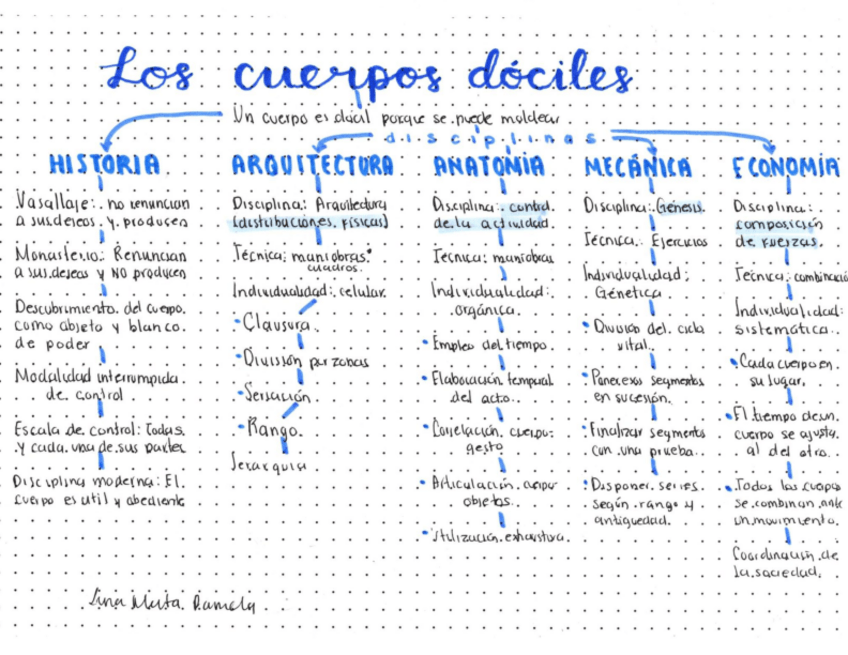 Los cuerpos dóciles
Un cuerpo es dócil porque se puede moldear
disciplinas
HISTORIA
Vasallaje: no renuncian
a sus deseos y producen
Monasterio: Renuncian
a sus deseos y NO producen
Descubrimiento del cuerpo
como objeto y blanco
de poder
Modalidad interrumpida
de control
Escala de control: Todas
y cada una de sus partes
Disciplina moderna: El
cuerpo es util y obediente
ARQUITECTURA
Disciplina: Arquitectura
(distribuciones físicas)
Técnica: maniobras
cuadros.
Individualidad: celular.
• Clausura.
• División por zonas
• Sensación.
• Rango.
Jerarquia
ANATOMÍA
Disciplina: control
de la actividad
Tecnica: maniobras
Individualidad:
orgánica.
• Empleo del tiempo.
• Elaboración temporal
del acto.
• Correlación cuerpo:
gesto
• Articulación cuerpo
objetos.
• Utilización exhaustiva.
MECÁNICA
Disciplina: Génesis.
Técnica: Ejercicios
Individualidad:
Génetica.
• División del ciclo
vital.
• Poner esos segmentos
en sucesión.
• Finalizar segmentos
con una prueba.
• Disponer series
según rango y
antiguedad.
ECONOMÍA
Disciplina:
composición
de fuerzas.
Técnica: combinació
Individualidad:
sistemática.
• Cada cuerpo en
su lugar.
• El tiempo de un
cuerpo se ajusta
al del otro.
• Todos los cuerpos
se combinan ante
un movimiento.
Coordinación de
la sociedad.
Daniela